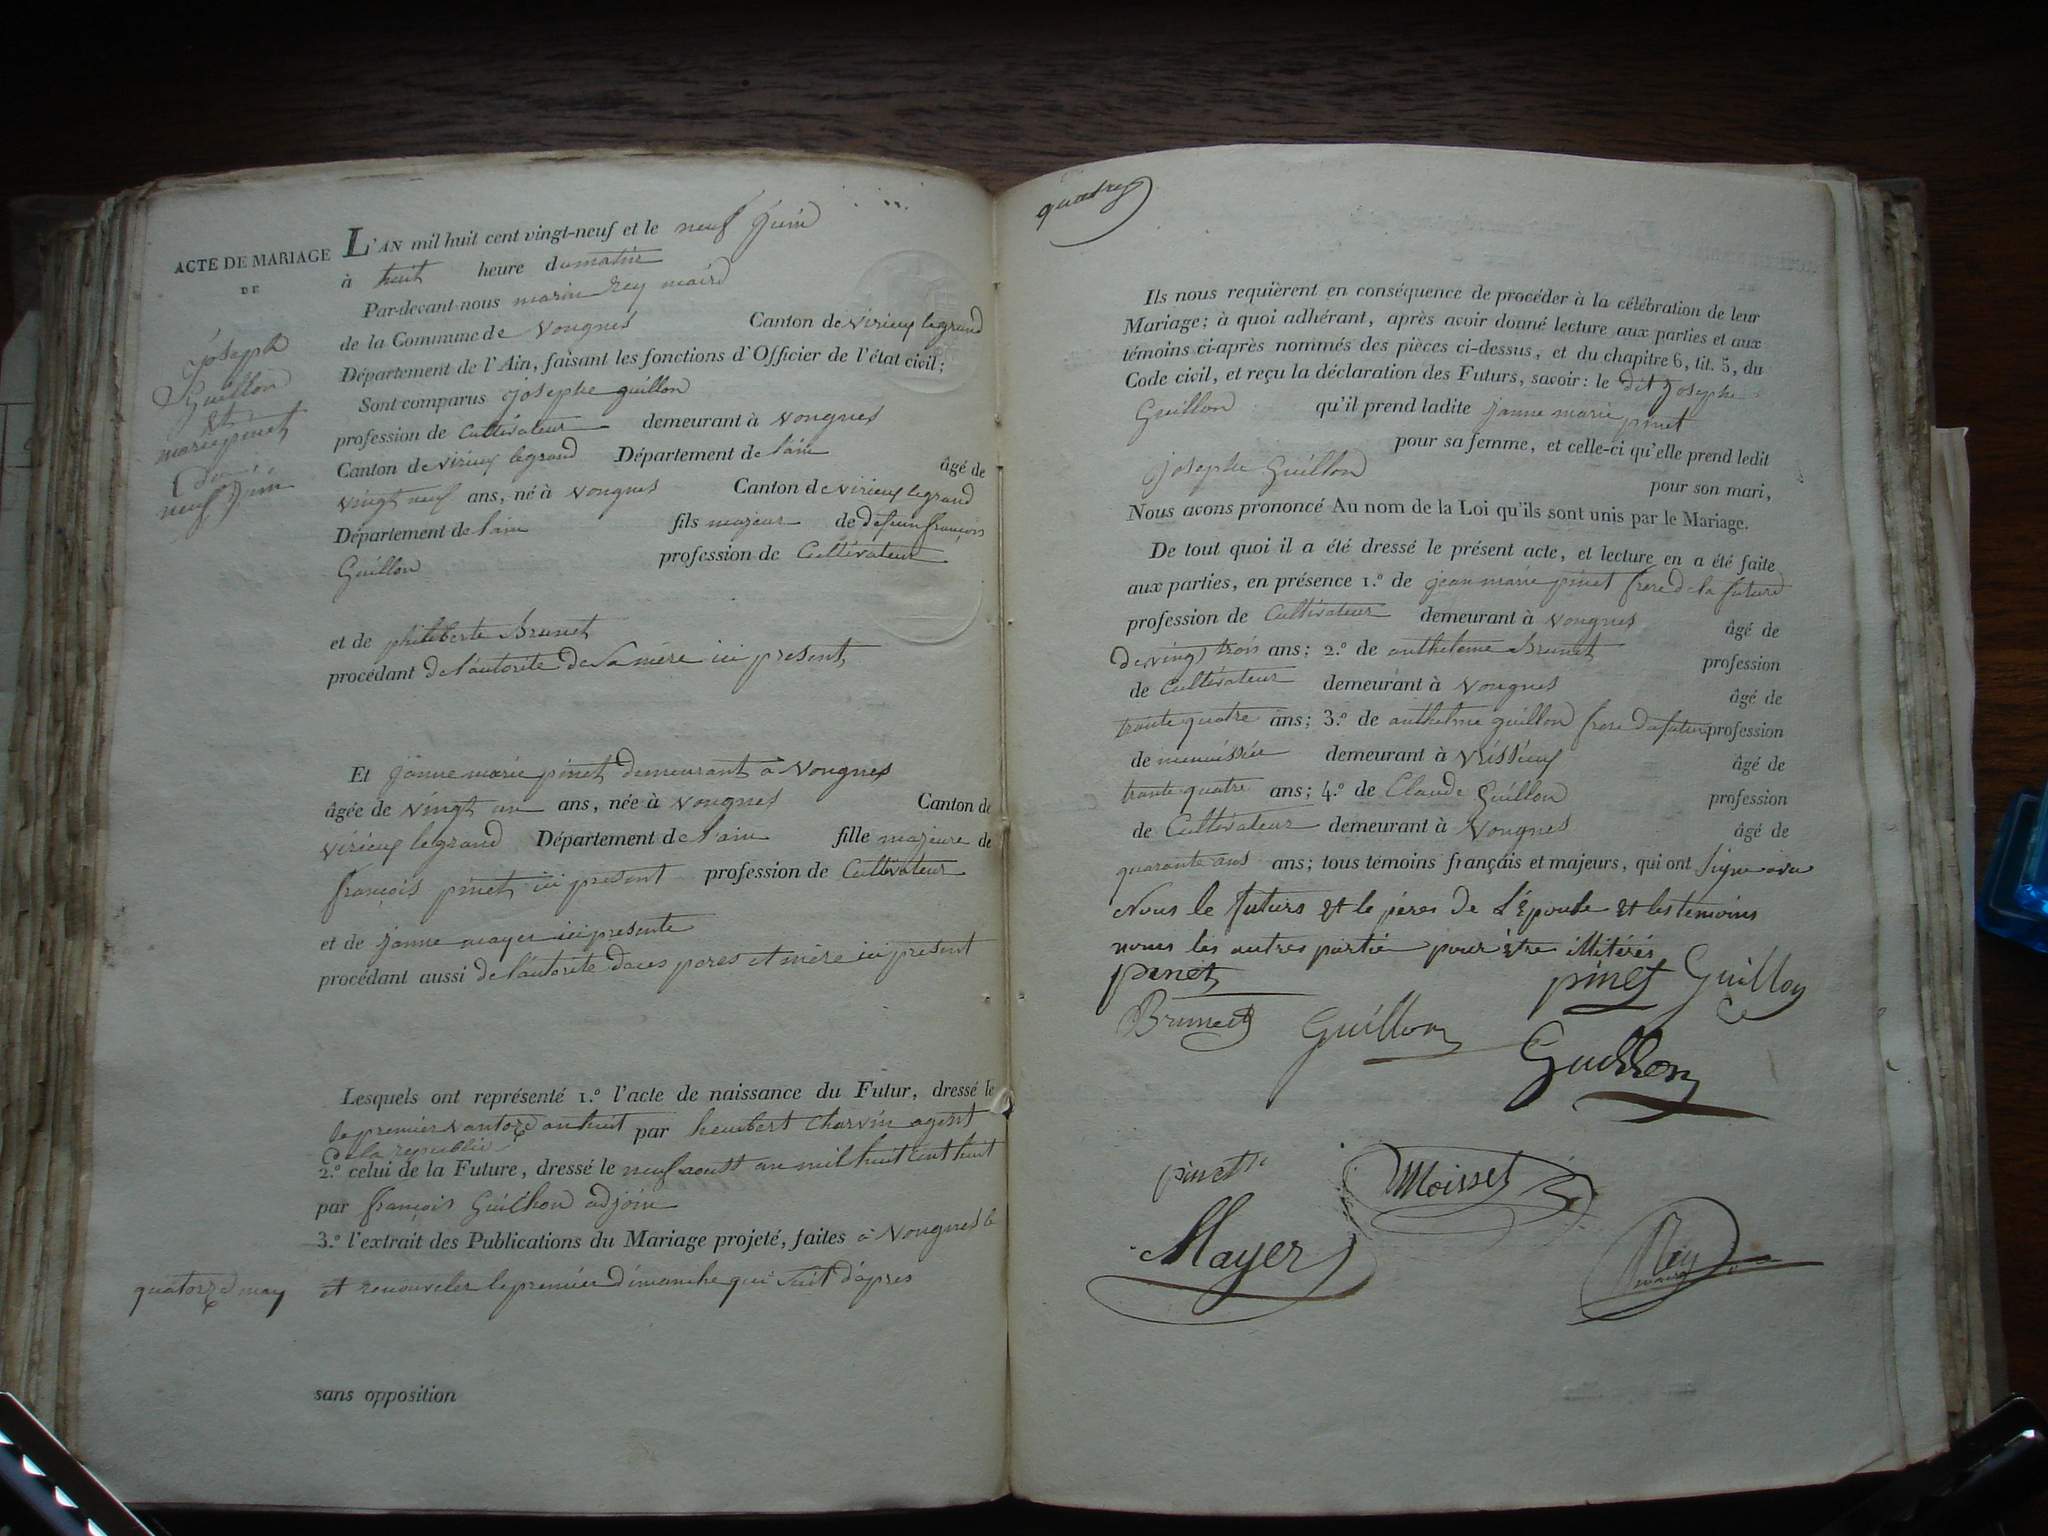 ACTE DE MARIAGE
DE
Joseph
Guillon
et
marie pinet
du
neuf juin
L'AN mil huit cent vingt-neuf et le neuf juin
à huit heure du matin
Par-devant-nous marin Rey maire
de la Commune de Vongnes Canton de virieux legrand
Département de l'Ain, faisant les fonctions d'Officier de l'état civil;
Sont comparus josephe guillon
profession de Cultivateur demeurant à vongnes
Canton de virieux legrand Département de l'ain âgé de
vingt neuf ans, né à vongnes Canton de virieux legrand
Département de l'ain fils majeur de defunt françois
Guillon profession de Cultivateur
et de philiberte Brunet
procédant de l'autorité de sa mère ici present
Et janne marie pinet demeurant à vongnes
âgée de vingt un ans, née à vongnes Canton de
virieux legrand Département de l'ain fille majeure de
françois pinet ici present profession de Cultivateur
et de janne mayer ici presente
procédant aussi de l'autorité de ces peres et mère ici present
Lesquels ont représenté 1.º l'acte de naissance du Futur, dressé le
le premier vantoze an huit par heumbert Charvin agent
de la republic
2.º celui de la Future, dressé le neuf aoust an mil huit cent huit
par françois Guilhon adjoin
3.º l'extrait des Publications du Mariage projeté, faites à Vongnes le
quatorze may et renouveler le premier dimanche qui suit d'apres
sans opposition
Ils nous requièrent en conséquence de procéder à la célébration de leur
Mariage; à quoi adhérant, après avoir donné lecture aux parties et aux
témoins ci-après nommés des pièces ci-dessus, et du chapitre 6, tit. 5, du
Code civil, et reçu la déclaration des Futurs, savoir: le dit Josephe
Guillon qu'il prend ladite janne marie pinet
pour sa femme, et celle-ci qu'elle prend ledit
josephe Guillon pour son mari,
Nous avons prononcé Au nom de la Loi qu'ils sont unis par le Mariage.
De tout quoi il a été dressé le présent acte, et lecture en a été faite
aux parties, en présence 1.º de jean marie pinet frere de la future
profession de Cultivateur demeurant à vongnes âgé de
de vingt trois ans; 2.º de antheleme Brunet profession
de Cultivateur demeurant à vongnes âgé de
trante quatre ans; 3.º de anthelme guillon frere du futur profession
de demeurant à âgé de
trante quatre ans; 4.º de Claude Guillon profession
de Cultivateur demeurant à Vongnes âgé de
quarante ans ans; tous témoins français et majeurs, qui ont signe avec
Nous le futurs et le péres de l'Epouse et les temoins
nomes les autres partie pour être illitérés
pinet pinet Guillon
Brunet Guillon Guillon
pinet Moisset
Mayer Rey